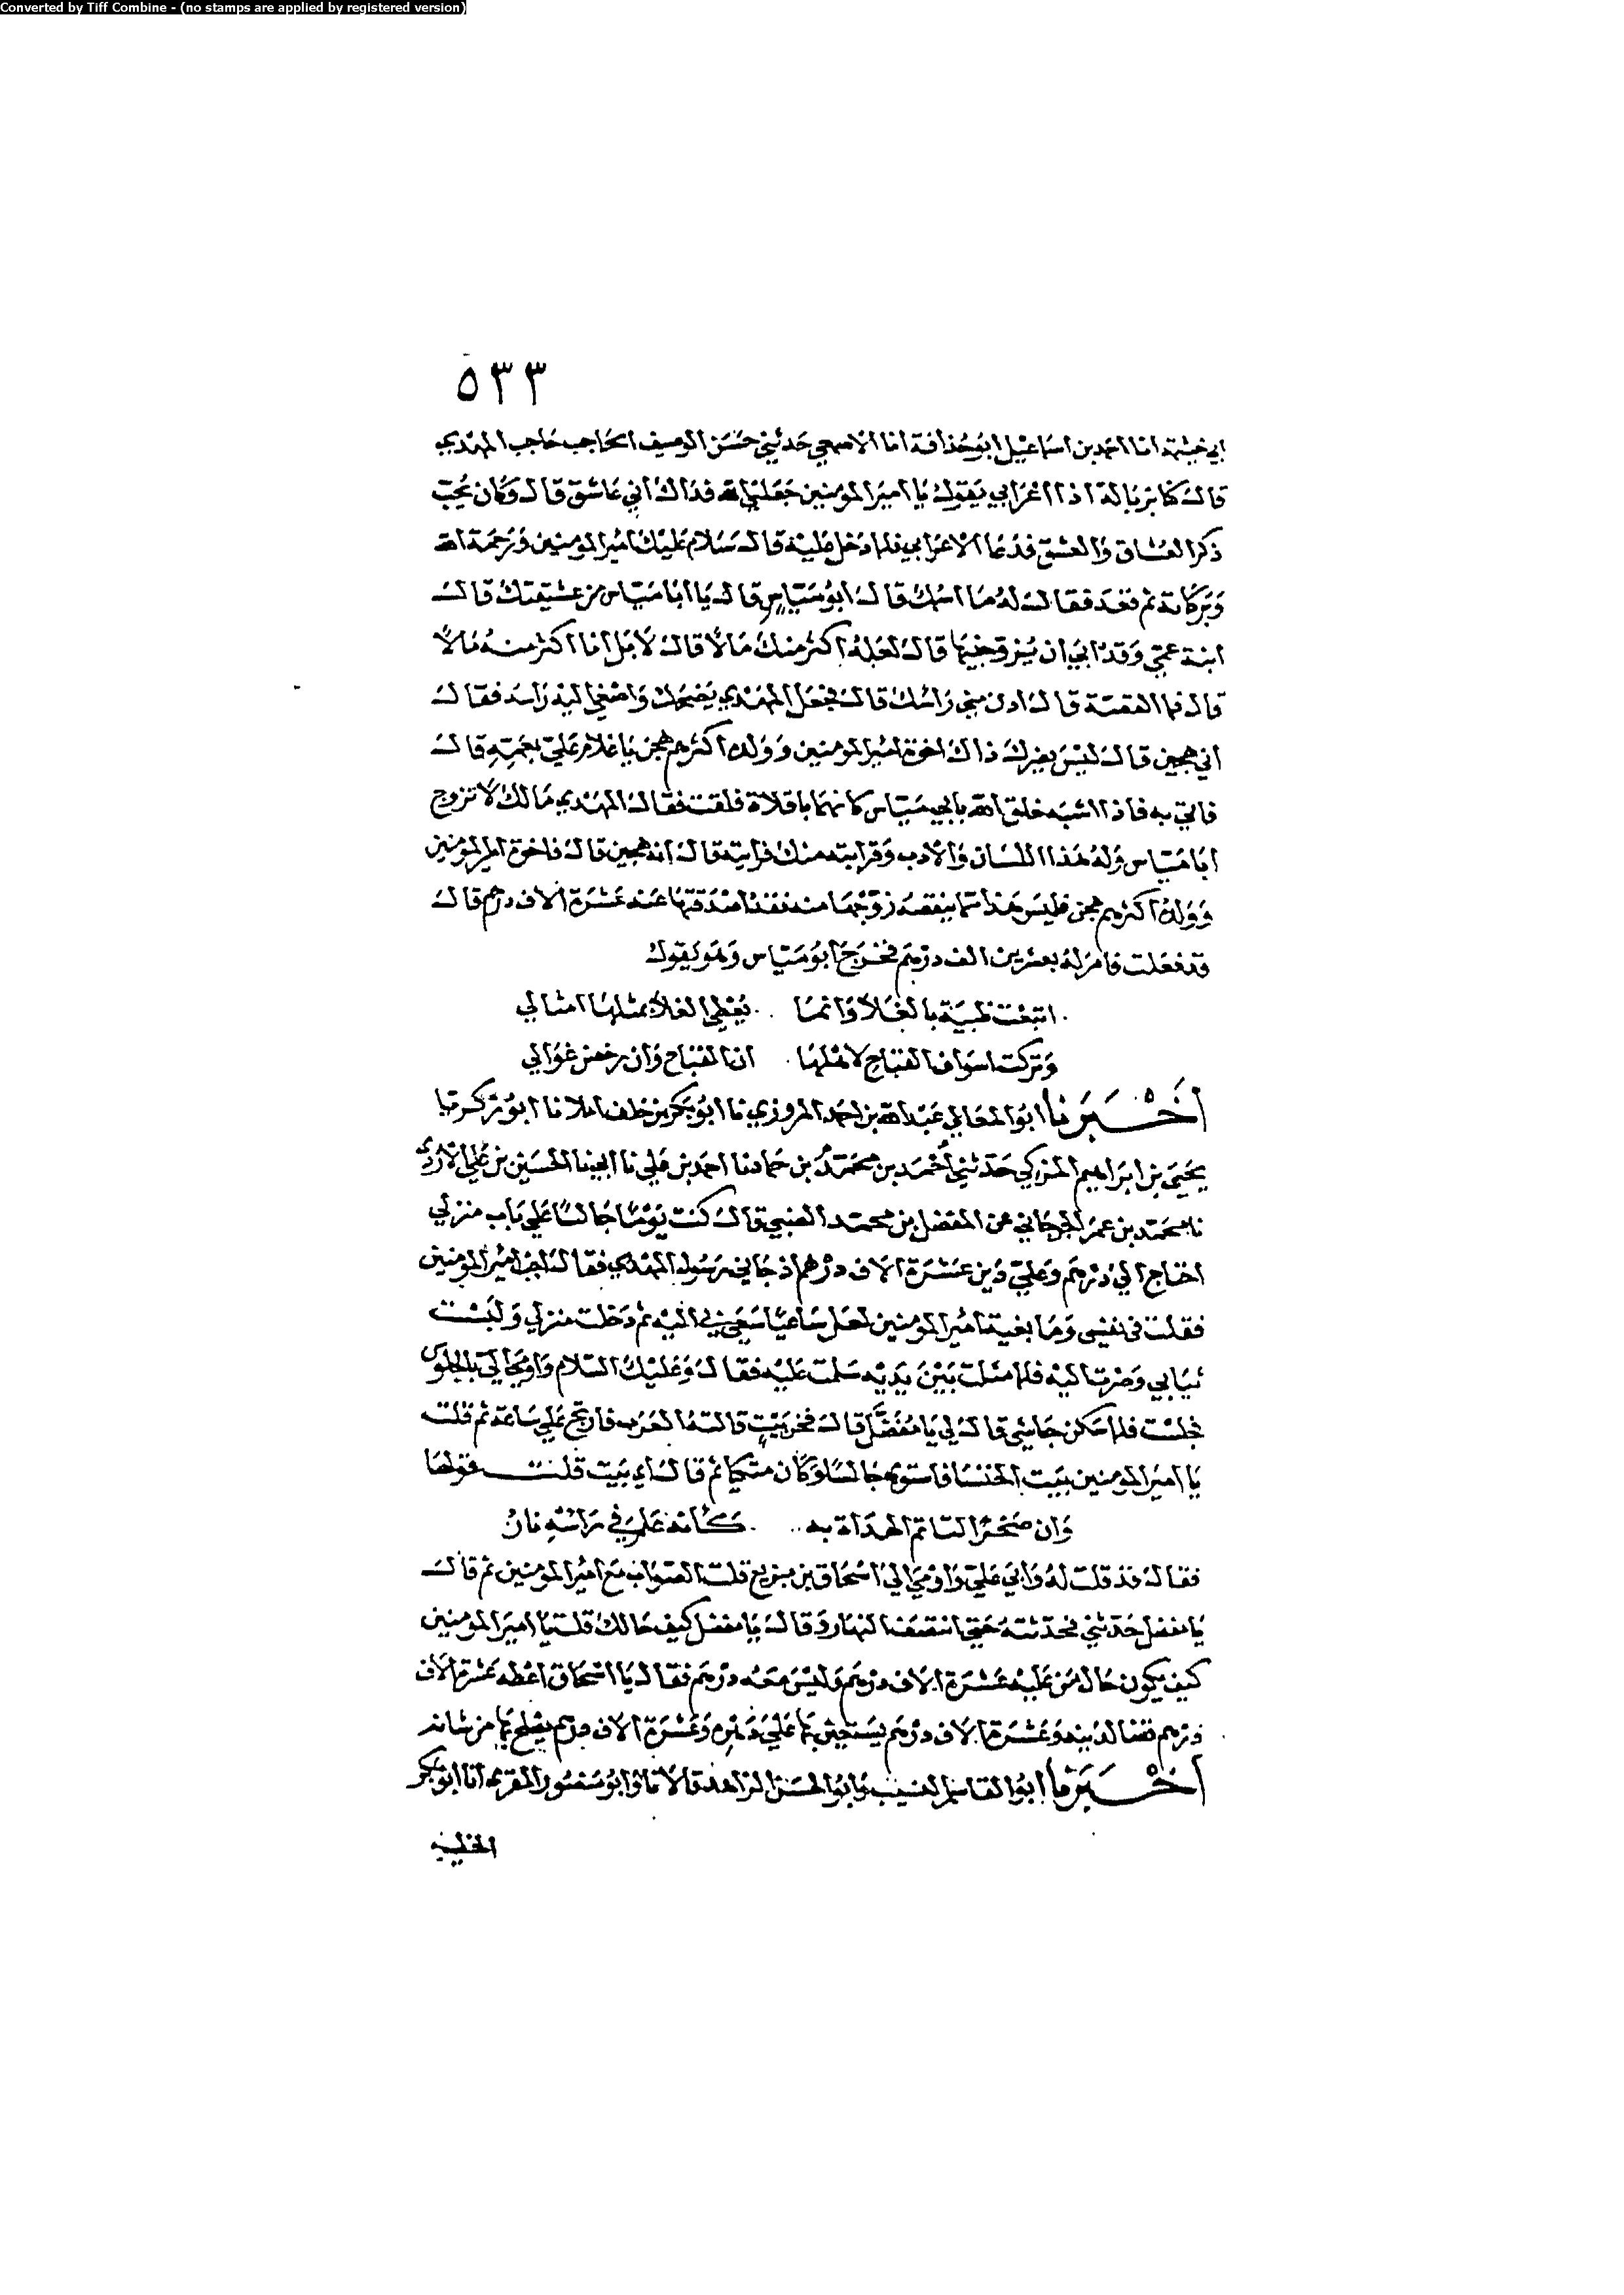 Converted by Tiff Combine - (no stamps are applied by registered version)
٥٣٣
ابي خيثمة انا احمد بن اسماعيل ابو حذافة انا الاصمعي حدثني حسن الوصيف الحاجب حاجب المهدي
قال كنا بزبالة اذا اعرابي يقول يا امير المومنين جعلني الله فداك اني عاشق قال وكان يحب
ذكر العشاق والعشق فدعا الاعرابي فلما دخل عليه قال سلام عليك امير المومنين ورحمة الله
وبركاته ثم قعد فقال له ما اسمك قال ابو مياس قال يا ابا مياس من عشيقتك قال
ابنة عمي وقد ابي ان يزوجنيها قال لعله اكثر منك مالا قال لا بل انا اكثر منه مالا
قال فما القصة قال ادن مني راسك قال فجعل المهدي يضحك واصغي اليه راسه فقال
اني هجين قال ليس يضرك ذاك اخوة امير المومنين وولده اكثرهم هجن يا غلام علي بعمه قال
فاتي به فاذا اشبه خلق الله بابي مياس كانهما باقلاة فلقت فقال المهدي مالك لا تزوج
ابا مياس وله هذا اللسان والادب وقرابته منك قرابته قال انه هجين قال فاخوة امير المومنين
وولده اكثرهم هجن فليس هذا مما ينقصه زوجها منه فقد اصدقتها عنه عشرة الاف درهم قال
قد فعلت فامر له بعشرين الف درهم فخرج ابو مياس وهو يقول
ابتعت ظبية بالغلاء وانما يعطي الغلاء بمثلها امثالي
وتركت اسواق القباح لاهلها ان القباح وان رخصن غوالي
اخبرنا ابو المعالي عبد الله بن احمد المروزي نا ابو بكر بن خلف املا نا ابو زكريا
يحيى بن ابراهيم المزكي حدثني احمد بن محمد بن حمادنا احمد بن علي نا ابعينا الحسين بن علي الازدي
نا محمد بن عمر الجرجاني عن المفضل بن محمد الضبي قال كنت يوما جالسا علي باب منزلي
احتاج الي درهم وعلي دين عشرة الاف درهم اذ جاني رسول المهدي فقال اجب امير المومنين
فقلت في نفسي وما بغية امير المومنين لعل ساعيا سعي بي اليه ثم دخلت منزلي ولبست
ثيابي وصرت اليه فلما مثلت بين يديه سلمت عليه فقال وعليك السلام واومي الي بالجلوس
فجلست فلما سكن جاشي قال لي يا مفضل قال فخر بيت قالته العرب فارتج علي ساعة ثم قلت
يا امير المومنين بيت الخنسا فاستوي جالسا وكان متكيا ثم قال اي بيت قلت قولها
وان صخرا لتاتم الهداة به كانه علم في راسه نار
فقال قد قلت له وابي علي واومي الي اسحاق بن بزيع قلت الصواب مع امير المومنين ثم قال
يا مفضل حدثني فحدثته حتي انتصف النهار وقال يا مفضل كيف حالك قلت يا امير المومنين
كيف يكون حال من عليه عشرة الاف درهم وليس معه درهم فقال يا اسحاق اعطه عشرة الاف
درهم قضا لدينه وعشرة الاف درهم يستعين بها علي دهره وعشرة الاف درهم يصلح بها من شانه
اخبرنا ابو القاسم النسيب وابو الحسن الزاهد قالا نا وابو منصور المقري انا ابو بكر
الخطيب